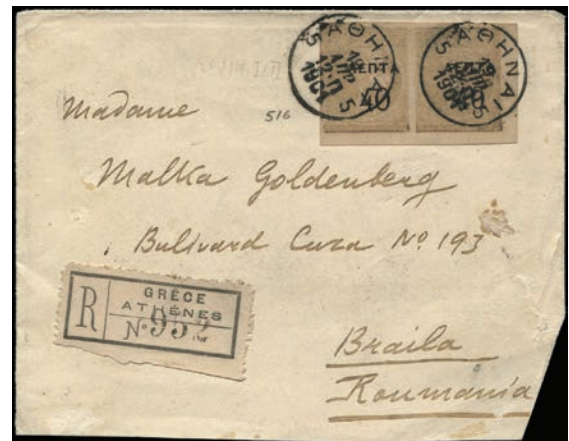 5 ΑΘΗΝΑΙ 5
5 ΑΘΗΝΑΙ 5
ΛΕΠΤΑ
40
Madame
516
Malka Goldenberg
Bulivard Cuza No 193
R
GRÈCE
ATHÈNES
No 952
Braila
Roumania